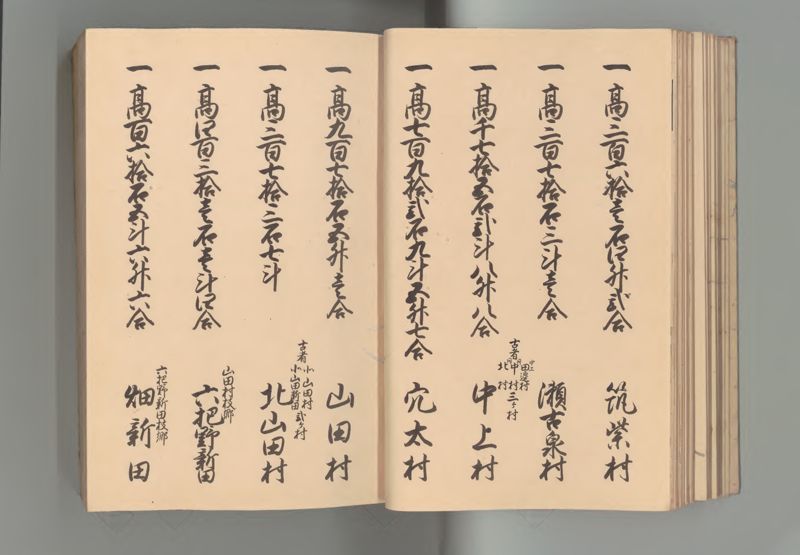 一高二百六拾壱石四升弐合 筑紫村
一高三百七拾石三斗壱合 瀬古泉村
一高千七拾五石弐斗八升八合
古者
田辺村
中村
北村
三ヶ村
中上村
一高七百九拾弐石九斗五升七合 穴太村
一高九百七拾石五升壱合 山田村
一高二百七拾二石七斗
古者
小山田村
小山田新田
弐ヶ村
北山田村
一高四百三拾壱石壱斗四合
山田村枝郷
六把野新田
一高百六拾石五斗六升六合
六把野新田枝郷
畑新田